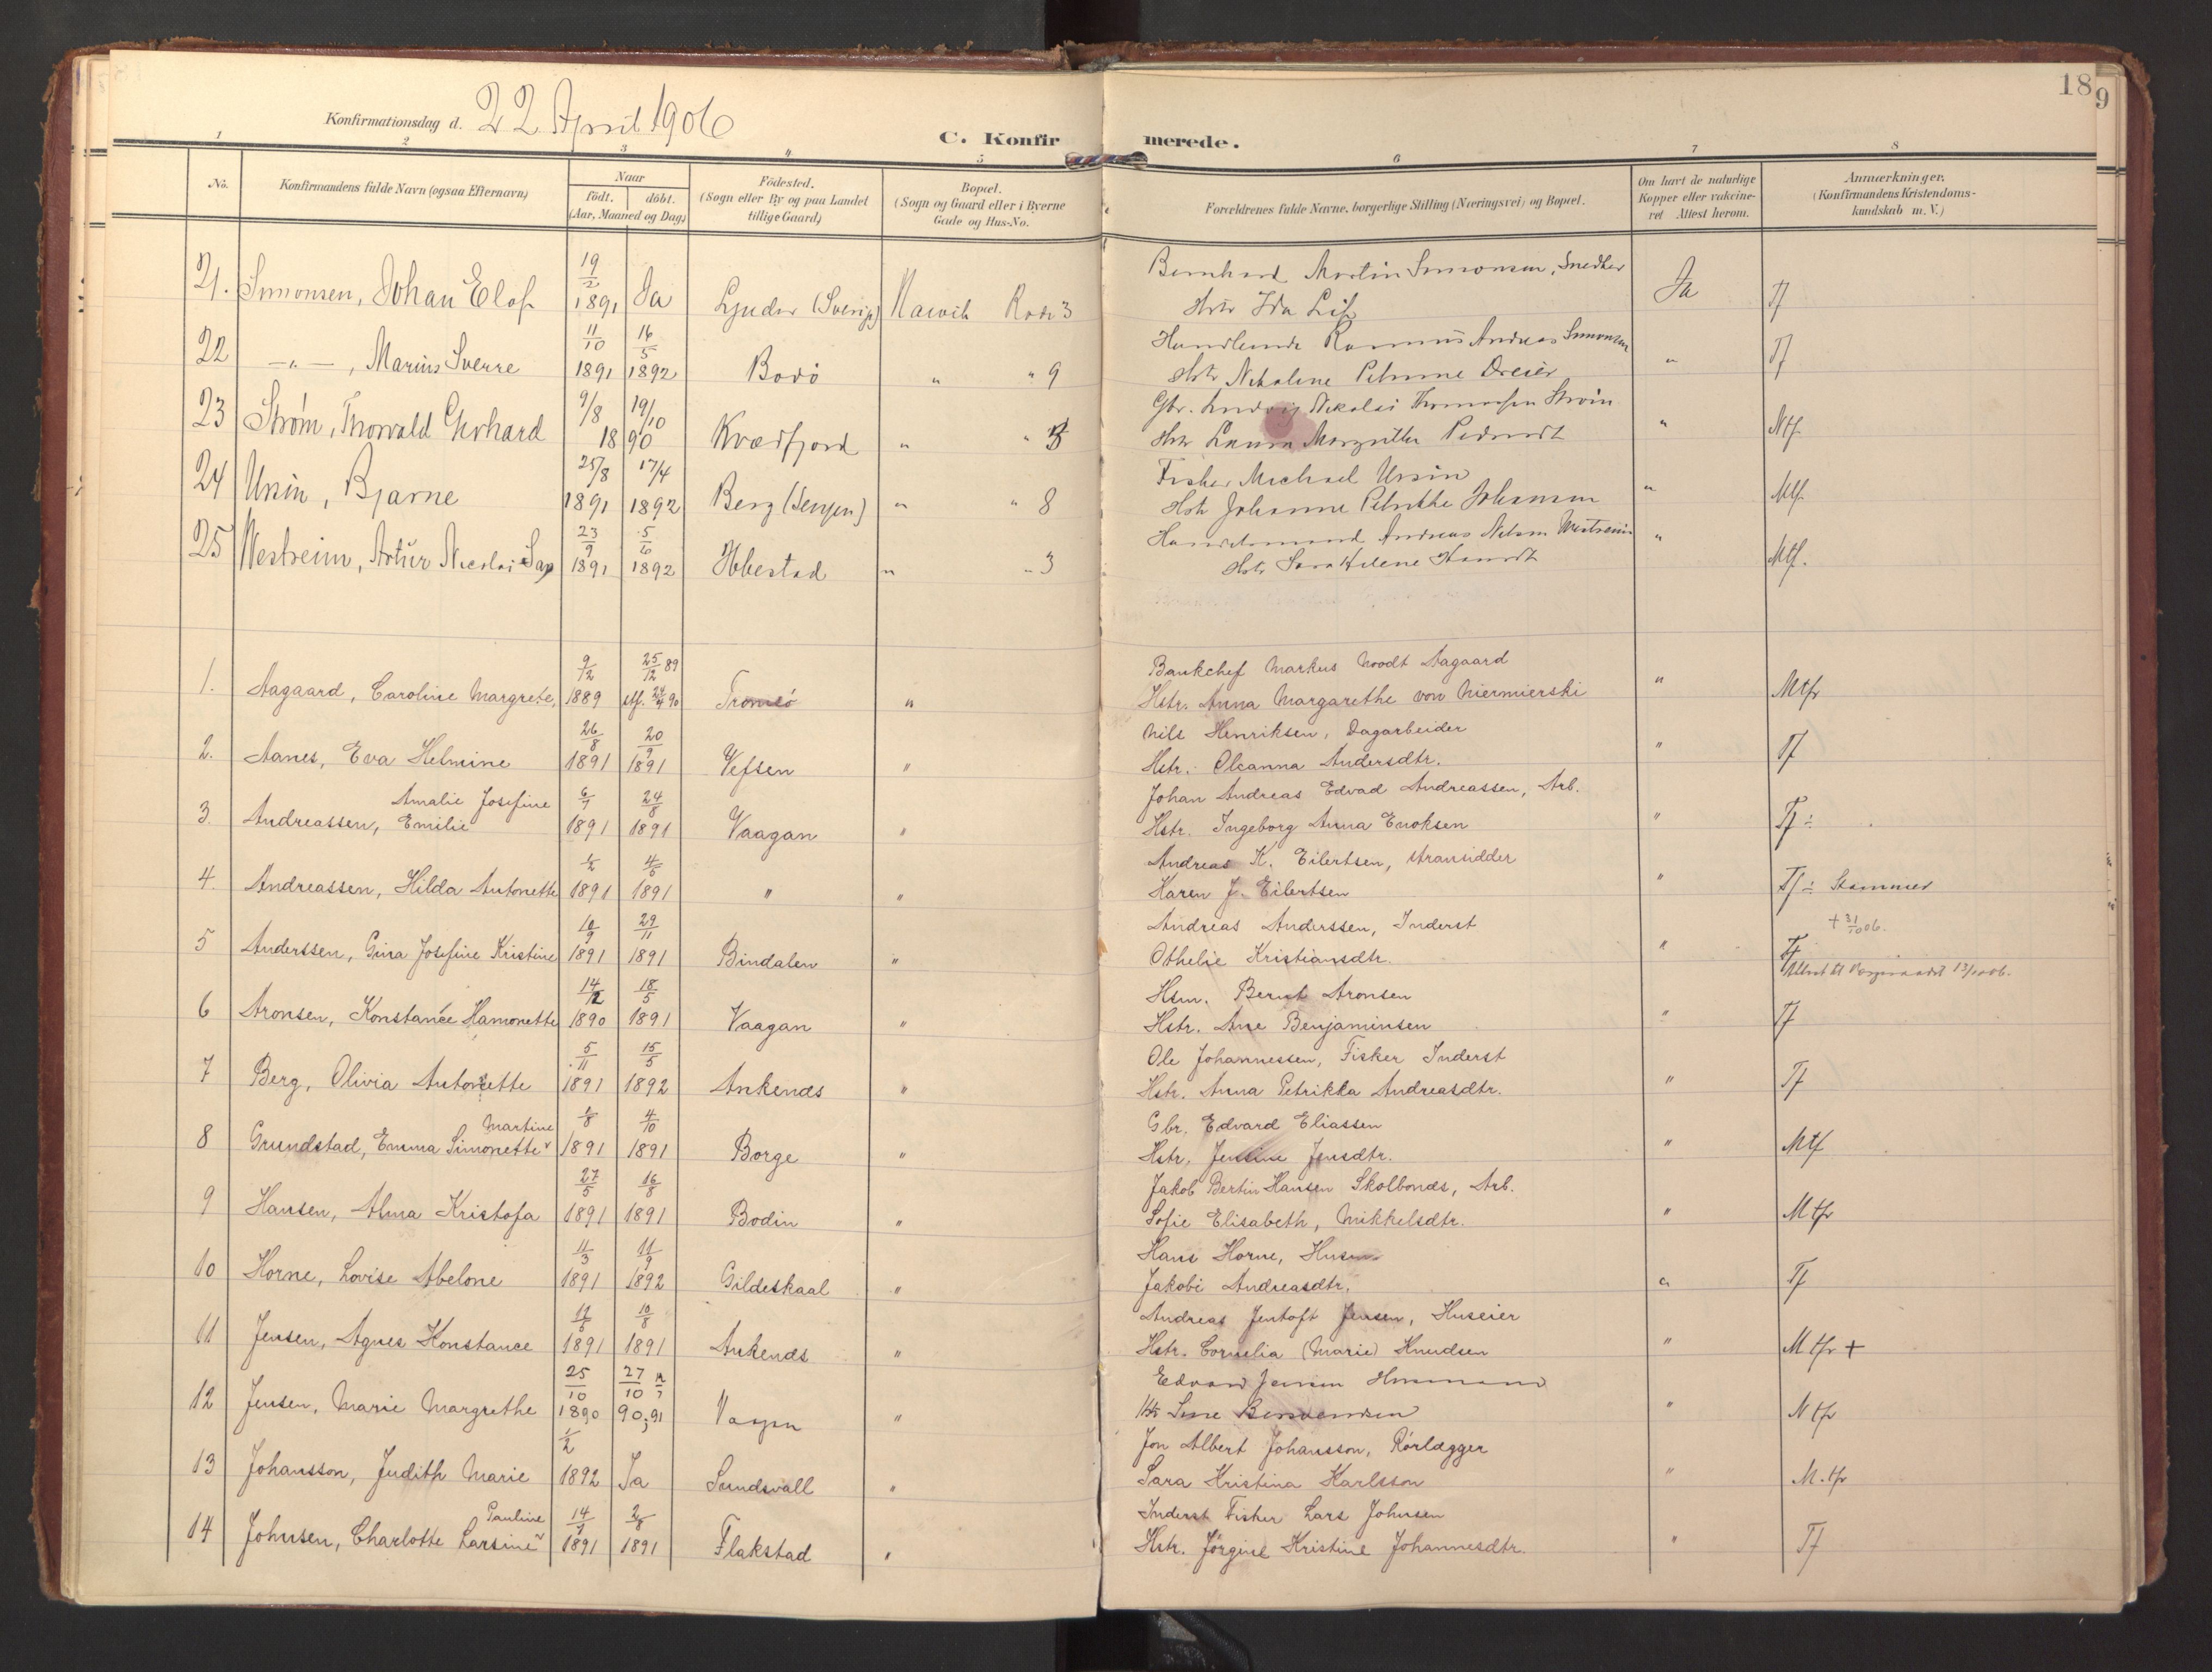 189
Konfirmationsdag d. 22 April 1906
C. Konfirmerede.
1 2 3 4 5 6 7 8
No.
Konfirmandens fulde Navn (ogsaa Efternavn)
Naar
födt. döbt.
(Aar, Maaned og Dag)
Födested.
(Sogn eller By og paa Landet
tillige Gaard)
Bopæl.
(Sogn og Gaard eller i Byerne
Gade og Hus-No.
Forældrenes fulde Navne, borgerlige Stilling (Næringsvei) og Bopæl.
Om havt de naturlige
Kopper eller vakcine-
ret Attest herom.
Anmærkninger.
(Konfirmandens Kristendoms-
kundskab m. V.)
21. Simonsen, Johan Elof 19/2 1891 Ja Ljuder (Sverige) Narvik Rode 3
Bernhard Martin Simonsen, Snedker
Hstr Ida Lif Ja Tf
22 —"—, Marius Sverre 11/10 1891 16/5 1892 Bodö " " 9
Handlende Rasmus Andreas Simonsen
Hstr Nikoline Petrine Dreier " Tf
23 Strøm, Thorvald Gerhard 9/8 19/10 1890 Kvædfjord "
Gbr. Ludvig Nikolai Thomassen Strøm
Hstr Laura Margrethe " Ntf.
24 Ursin, Bjarne 25/8 1891 17/4 1892 Berg (Senjen) " " 8
Fisker Michael Ursin
Hstr Johanne Petrikke Johansen " Mtf.
25 Westreim, Artur Nicolai Sax 23/9 1891 5/6 1892 Ibbestad " " 3
Handelsmand Andreas Nilsen Westreim
Hstr Sara Helene " Mtf.
1. Aagaard, Caroline Margrete, 9/12 1889 25/12 89 stf. 24/4 90 Tromsö "
Bankchef Markus Noodt Aagaard
Hstr. Anna Margarethe von Niermierski " Mtfr
2. Aanes, Eva Helmine 26/8 1891 20/9 1891 Vefsen "
Nils Henriksen, Dagarbeider
Hstr. Oleanna Andersdtr. " Tf
Amalie Josefine
3. Andreassen, Emilie 6/7 1891 24/8 1891 Vaagan "
Johan Andreas Edvad Andreassen, Arb.
Hstr. Ingeborg Anna Enoksen " Tf ÷
4. Andreassen, Hilda Antonette 1/2 1891 4/5 1891 " "
Andreas K. Eilertsen, Stransidder
Karen J. Eilertsen " Tf ÷ Stammer
5 Anderssen, Gina Josefine Kristine 10/9 1891 29/11 1891 Bindalen "
Andreas Anderssen, Inderst + 31/10 06.
Othelie Kristiansdtr. " Tf
6 Aronsen, Konstance Hamonette 14/12 1890 18/5 1891 Vaagan "
Hsm. Bernt Aronsen
Hstr. Ane Benjaminsen " Tf
7 Berg, Olivia Antonette 5/11 1891 15/5 1892 Ankenes "
Ole Johannessen, Fisker Inderst
Hstr. Anna Petrikka Andreasdtr. " Tf
Martine
8 Grundstad, Emma Simonette 1/8 1891 4/10 1891 Borge "
Gbr. Edvard Eliassen
Hstr. Jensine Jensdtr. " Mtf
9 Hansen, Alma Kristofa 27/5 1891 16/8 1891 Bodin "
Jakob Bertin Hansen Skolbones, Arb.
Sofie Elisabeth, Mikkelsdtr. " Mtfr
10 Horne, Lovise Abelone 11/3 1891 11/9 1892 Gildeskaal "
Hans Horne, Husm
Jakobi Andreasdtr. " Tf
11 Jensen, Agnes Konstance 1891 10/8 1891 Ankenes "
Andreas Jentoft Jensen, Huseier
Hstr. Cornelia (Marie) Knudsen " Mtfr +
12 Jensen, Marie Margrethe 25/10 1890 27/10 90, 91 Vagan "
Edvard Jensen Husmand
Hstr Sine " Ntfr
13 Johansson, Judith Marie 1/2 1892 Ja Sundsvall "
Jon Albert Johansson, Rörlægger
Sara Kristina Karlsson " M.tfr
Pauline
14 Johnsen, Charlotte Larsine 14/9 1891 2/8 1891 Flakstad "
Inderst Fisker Lars Johnsen
Hstr. Jörgine Kristine Johannesdtr. " Tf